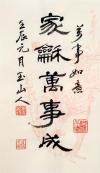 萬事如意
家龢萬事成
壬辰元月玉山人